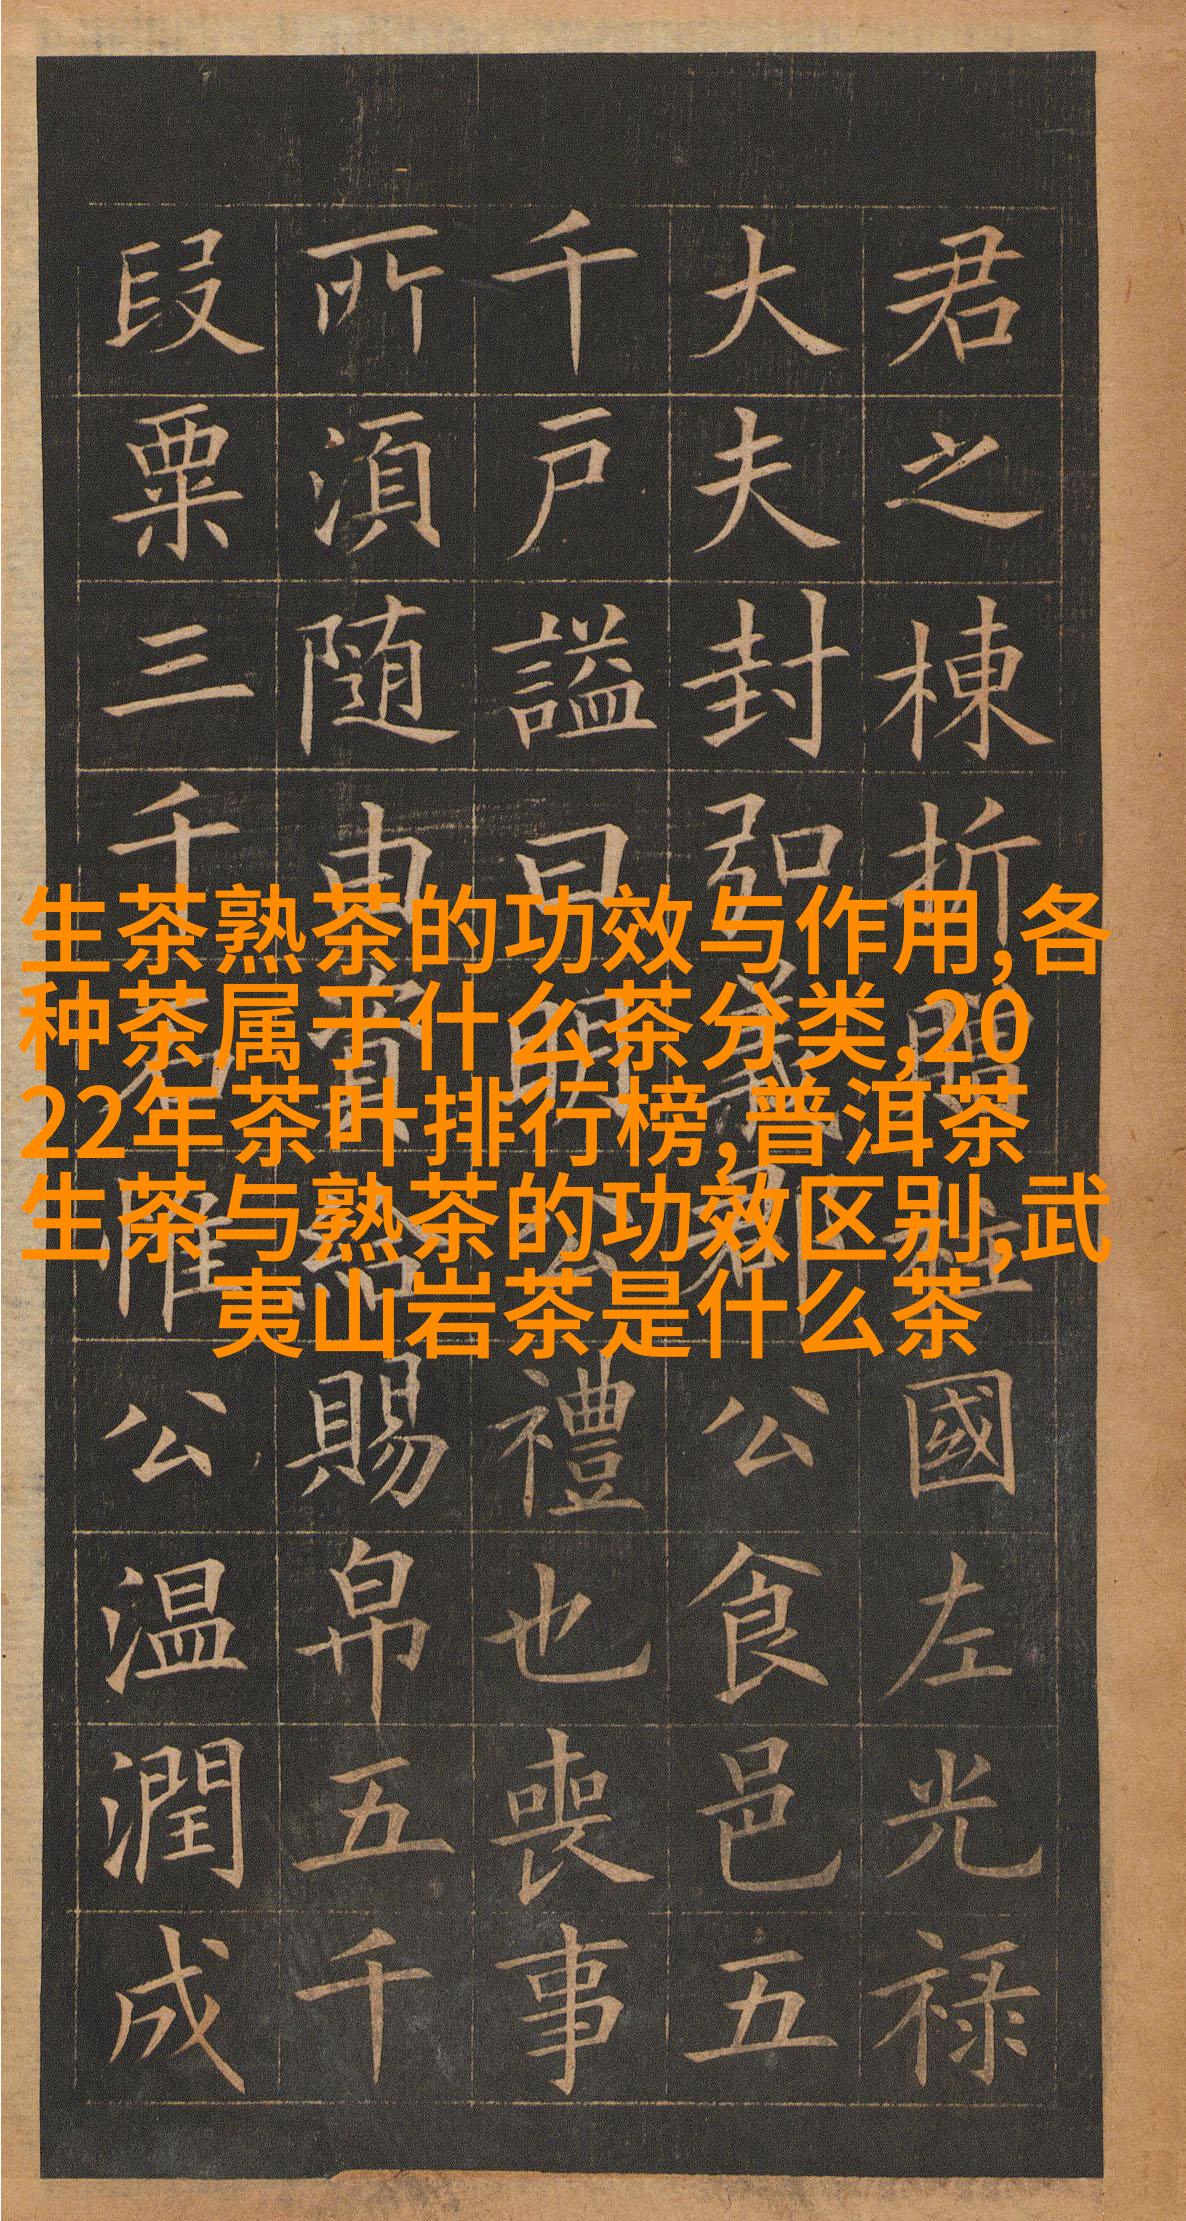 生茶熟茶的功效与作用,各
种茶属于什么茶分类,20
22年茶叶排行榜,普洱茶
生茶与熟茶的功效区别,武
夷山岩茶是什么茶
君之棟折贈柱國左光禄
大夫封弘義郡公食邑五
千戸謚曰明公禮也喪事
所湏随由資給賜帛五千
段粟三千石惟公温潤成